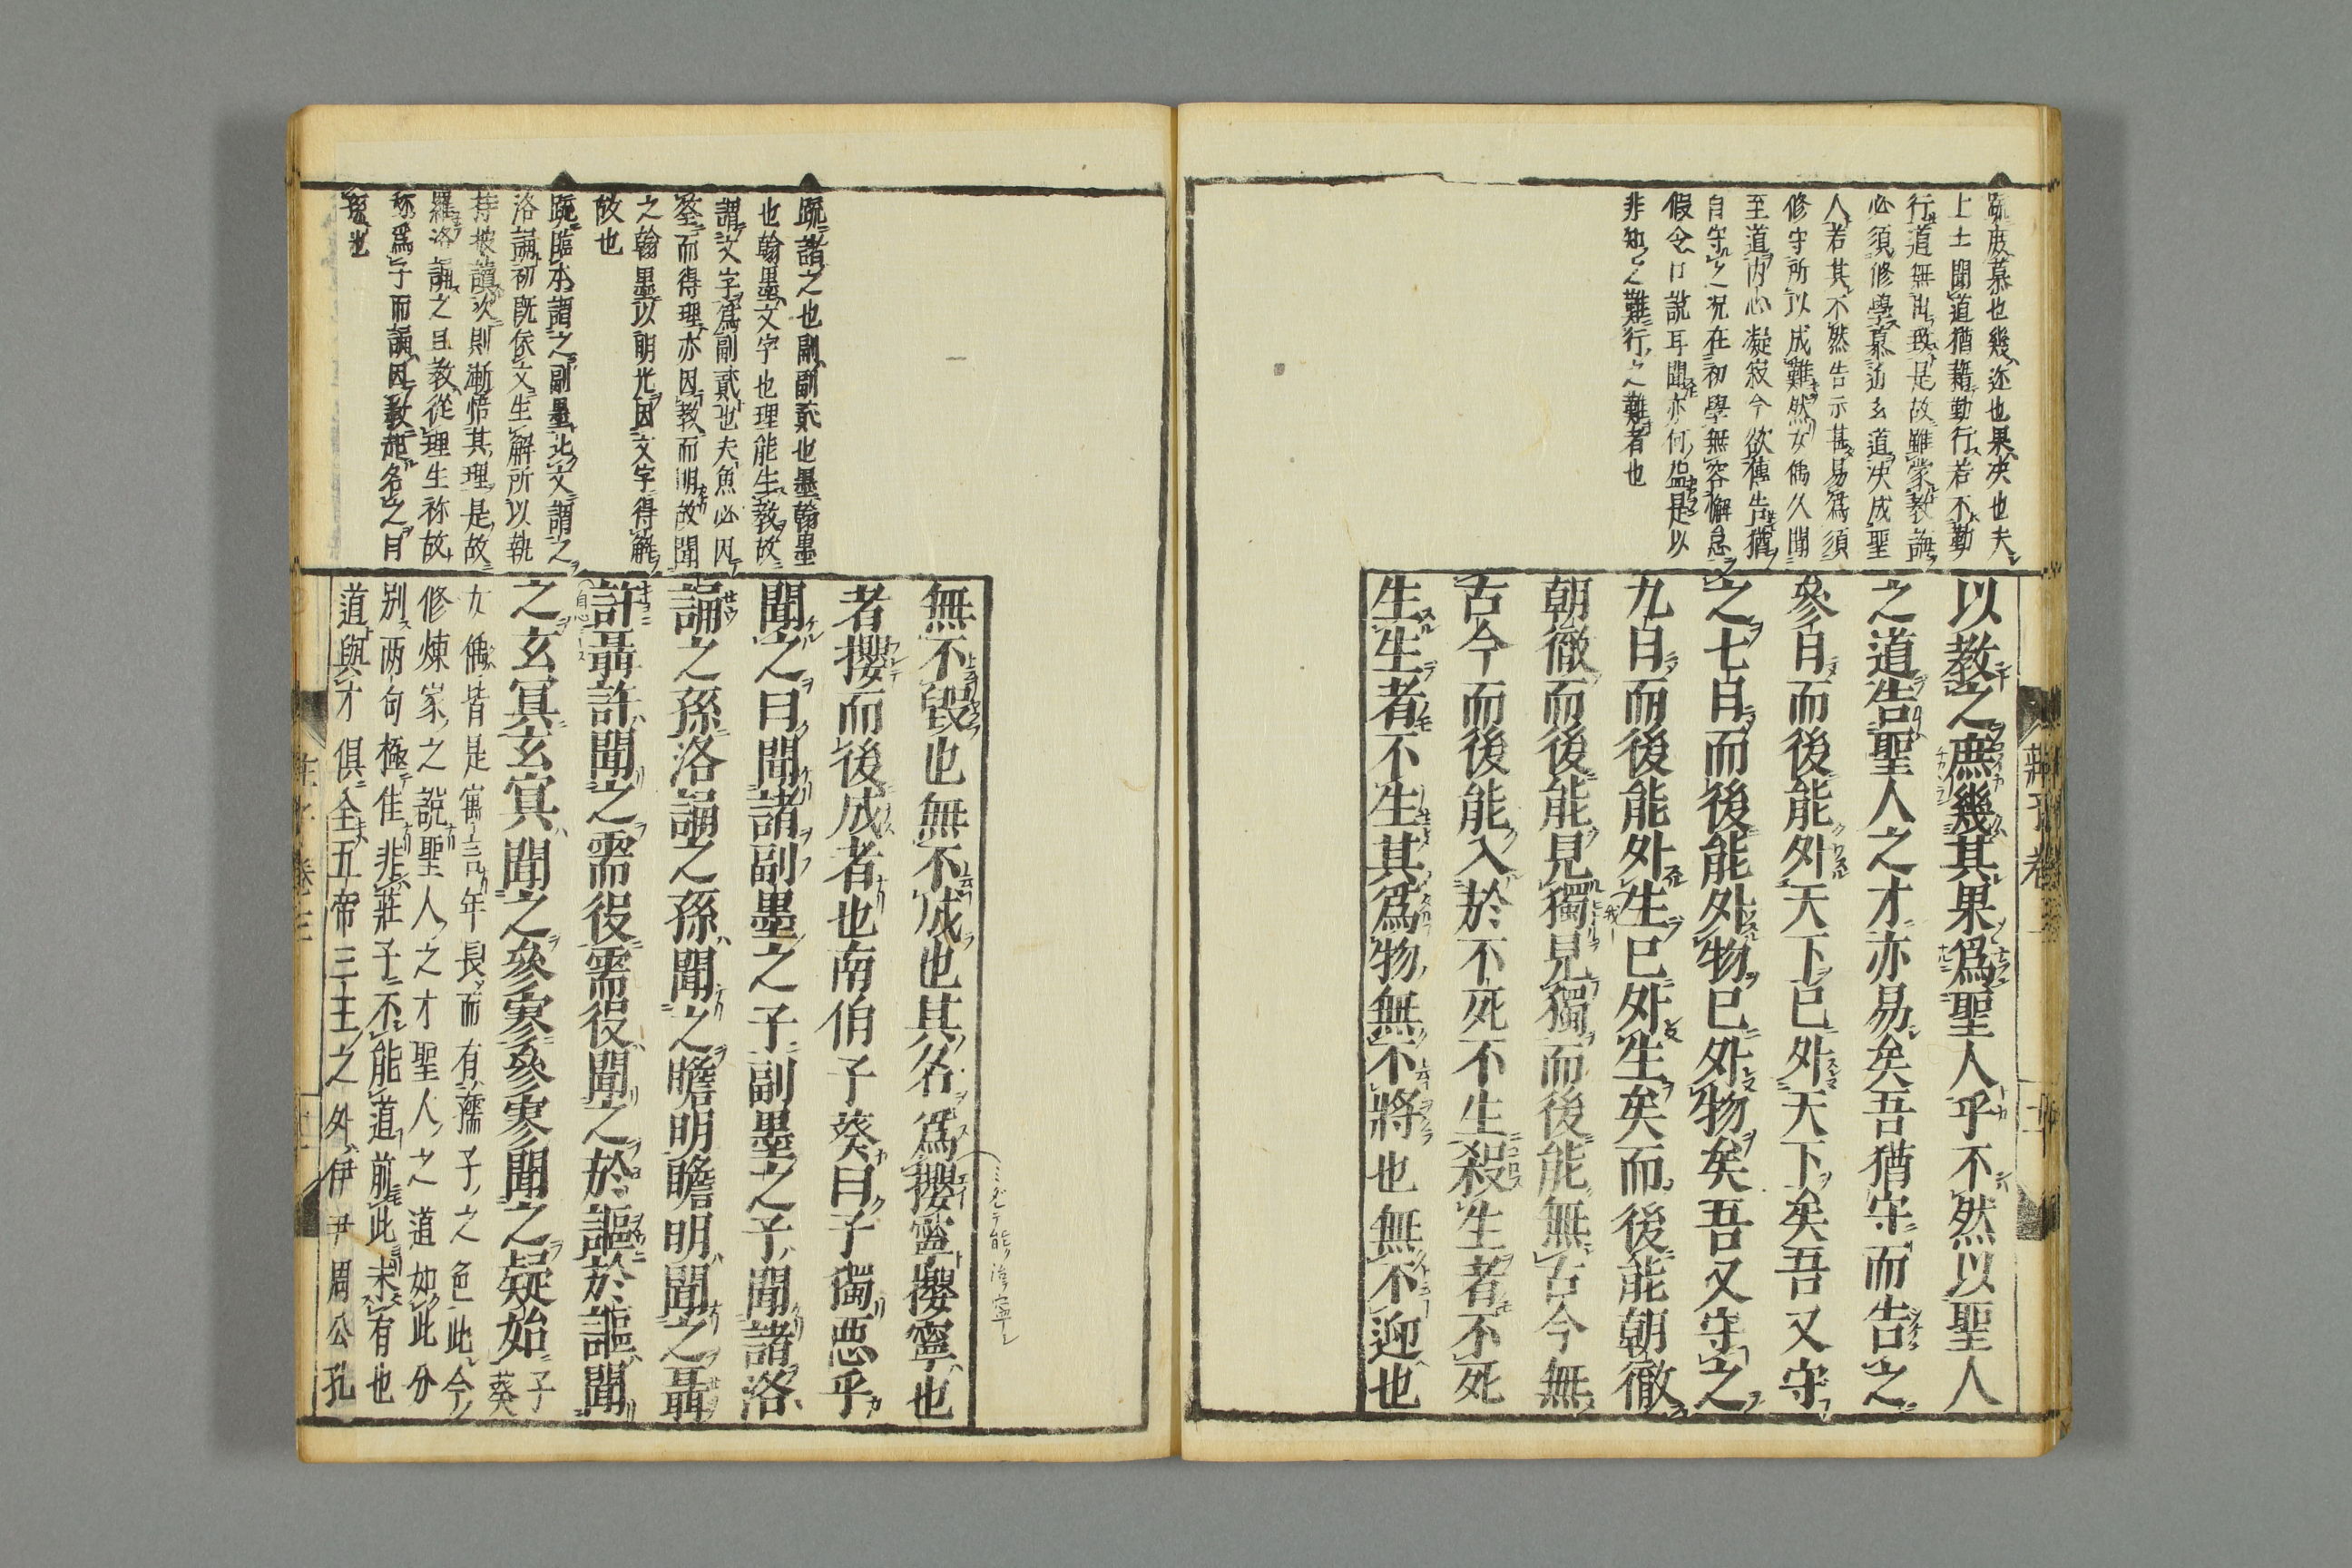 疏庻慕也幾近也果决也夫
上士聞道猶藉勤行若不勤
行道無由致是故雖蒙教誨
必須修學慕近玄道决成聖
人若其不然告示甚易爲須
修守所以成難然女偊久聞
至道内心凝寂今欲傳告猶
自守之况在初學無容懈怠
假令口說耳聞亦何益是以
非知之難行之難者也
以教之庶幾其果爲聖人乎不然以聖人
之道告聖人之才亦易矣吾猶守而告之
參日而後能外天下已外天下矣吾又守
之七日而後能外物已外物矣吾又守之
九日而後能外生已外生矣而後能朝徹
朝徹而後能見獨見獨而後能無古今無
古今而後能入於不死不生殺生者不死
生生者不生其爲物無不將也無不迎也
疏諸之也副副貳也墨翰墨
也翰墨文字也理能生教故
謂文字爲副貳也夫魚必因
筌而得理亦因教而明故聞
之翰墨以明先因文字得解
故也
疏臨本謂之副墨北文謂之
洛誦初既依文生解所以執
持披讀次則漸悟其理是故
羅洛誦之且教從理生称故
称爲子而誦因教起名之曰
孫也
無不毀也無不成也其名爲攖寧攖寧也
者攖而後成者也南伯子葵曰子獨惡乎
聞之曰聞諸副墨之子副墨之子聞諸洛
誦之孫洛誦之孫聞之瞻明瞻明聞之聶
許聶許聞之需役需役聞之於謳於謳聞
之玄冥玄冥聞之參寥參寥聞之疑始子
葵
女偊皆是寓言年長而有孺子之色此今
修煉家之說聖人之才聖人之道如此分
别两句極佳非莊子不能道前此未有也
道與才俱全五帝三王之外伊尹周公孔
莊子卷三